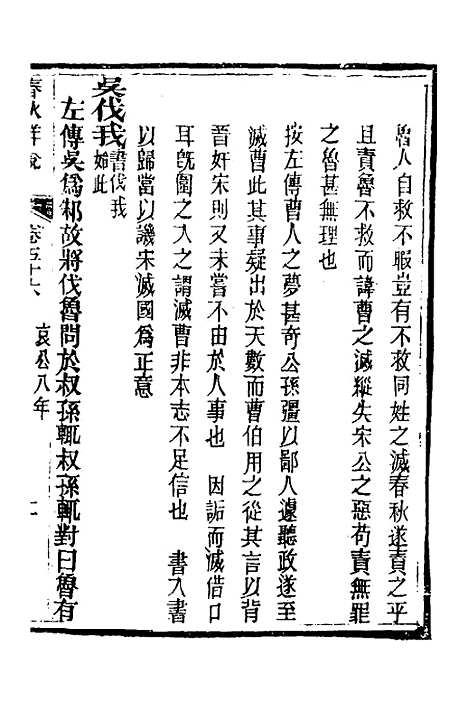 魯人自救不暇豈有不救同姓之滅春秋遂責之乎
且責魯不救而諱曹之滅縱失宋公之惡苟責無罪
之魯甚無理也
按左傳曹人之夢甚奇公孫彊以鄙人遽聽政遂至
滅曹此其事疑出於天數而曹伯用之從其言以背
晉奸宋則又未嘗不由於人事也　因詬而滅借口
耳旣圍之入之謂滅曹非本志不足信也　書入書
以歸當以譏宋滅國爲正意
吳伐我書伐我始此
左傳吳爲邾故將伐魯問於叔孫輒叔孫輒對曰魯有
春秋詳說　卷五十六　哀公八年